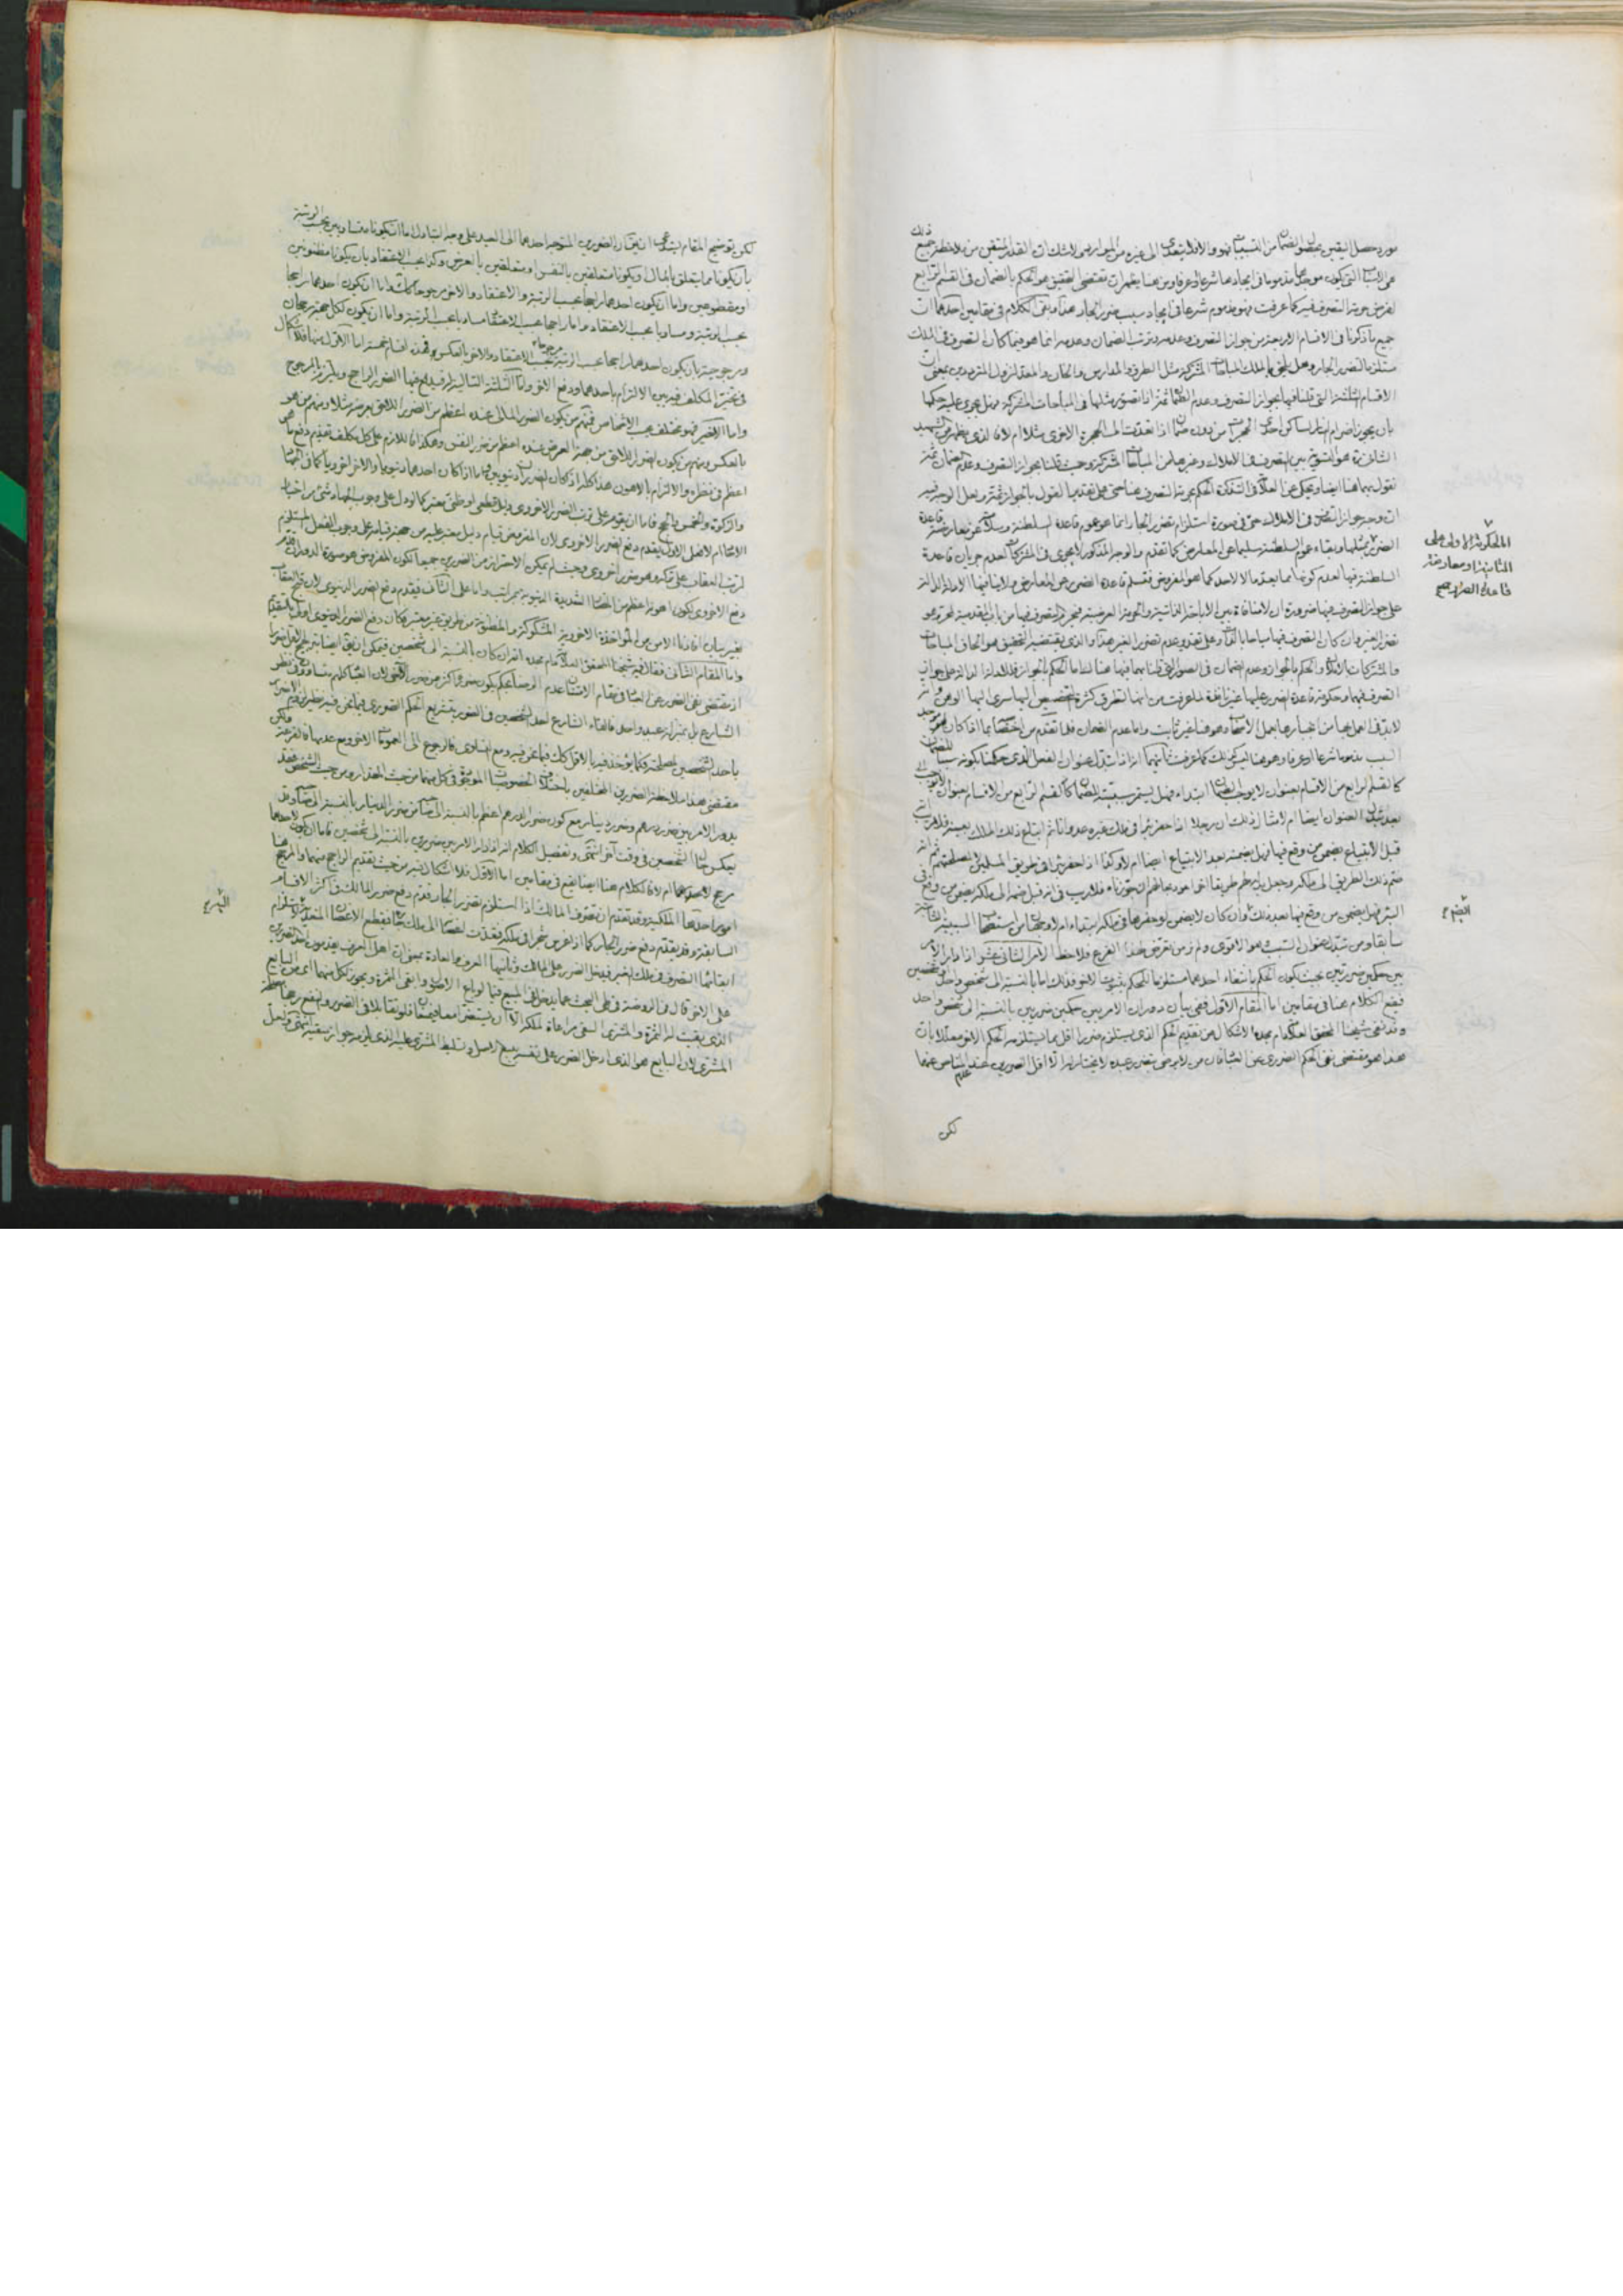 مورد حصل اليقين بحصول الضمان من التسبيبات فهو والا فلا يتعدى الى غيره من الموارد ولا شك ان القدر المتيقن من ملاحظة جميع ذلك
هي التى يكون موجدها مذموما فى ايجادها شرعا او عرفا ومن هنا يظهر ان مقتضى التحقيق هو الحكم بالضمان فى القسم الرابع
لفرض حرمة التصرف فيه كما عرفت فهو مذموم شرعا فى ايجاد سبب ضرر الجار هذا وبقى الكلام فى مقامين احدهما ان
جميع ما ذكرنا فى الاقسام الاربعة من جواز التصرف وعدمه وترتب الضمان وعدمه انما هو فيما كان التصرف فى الملك
مستلزما لتضرر الجار وهل يلحق بالملك المباحات المشتركة مثل الطرق والمدارس والخان والمعد لنزول المترددين بمعنى ان
الاقسام الثلثة التى قلنا فيها بجواز التصرف وعدم الضمان اذا تصور مثلها فى المباحات المشتركة فهل يجرى عليه حكمها
بان يجوز اضرام النار لساكن احدى الحجرات من دون ضمان اذا تعدت الى الحجرة الاخرى مثلا ام لا فالذى يظهر من الشهيد
الثانى هو التسوية بين التصرف فى الاملاك وغيرها من المباحات المشتركة وحيث قلنا بجواز التصرف وعدم الضمان ثمة
نقول بهما هنا ايضا ويحكى عن العلامة فى التذكرة الحكم بحرمة التصرف هنا حتى على تقدير القول بالجواز ثمة ولعل الوجه فيه
ان وجه جواز التصرف فى الاملاك حتى فى صورة استلزام تضرر الجار انما هو عموم قاعدة السلطنة وسلامته عن معارضة قاعدة
الضرر بمثلها وبقاء عموم السلطنة سليما عن المعارض كما تقدم والوجه المذكور لا يجرى فى المشتركات لعدم جريان قاعدة
السلطنة فيها لعدم كونها مما يعد مالا لاحد كما هو المفروض فتسلم قاعدة الضرر عن المعارض ولا ينافيها الادلة الدالة
على جواز التصرف فيها ضرورة ان لا منافاة بين الاباحة الذاتية والحرمة العرضية فيحرم التصرف فيها من باب المقدمية لحرمة
تضرر الغير وان كان التصرف فيها مباحا بالذات وعلى تقدير عدم تضرر الغير هذا والذى يقتضيه التحقيق هو الحاق المباحات
والمشتركات بالاملاك والحكم بالجواز وعدم الضمان فى الصور التى قلنا بهما فيها هنا لنا اما الحكم بالجواز فللادلة الدالة على جواز
التصرف فيها وحكومة قاعدة الضرر عليها غير نافعة لما عرفت من انها لتطرق كثرة التخصيص اليها سرى ليها الوهن
لا بد فى العمل بها من انجبارها بعمل الاصحاب وهو هنا غير ثابت واما عدم الضمان فلما تقدم من اختصاصها بما اذا كان
السبب مذموما شرعا او عرفا وهو هنا ليس كذلك كما عرفت ثانيهما انه اذا تبدل عنوان الفعل الذى حكمنا بكونه سببا للضمان
كالقسم الرابع من الاقسام بعنوان لا يوجب الضمان ابتداء فهل يستمر سببيته للضمان كالقسم الرابع من الاقسام بعنوان
بعد تبدل العنوان ايضا ام لا مثال ذلك ان رجلا اذا حفر بئرا فى ملك غيره عدوانا ثم ابتاع ذلك الملك بعينه فلا ريب
قبل الابتياع يضمن من وقع فيها فهل يضمنه بعد الابتياع ايضا ام لا وكذا اذا حفر بئرا فى طريق المسلمين لمصلحتهم ثم انه
ضم ذلك الطريق الى ملكه وجعل بدله لهم طريقا اخر
البئر فهل يضمن من وقع فيها بعد ذلك وان كان لا يضمن لو حفرها فى ملكه ابتداء ام لا وجهان من استصحاب السببية الثابتة
سابقا ومن تبدل عنوان السبب وهو الاقوى ولم نر من تعرض لهذا الفرع فلاحظ الامر الثانى عشر اذا دار الامر
بين حكمين ضرريين بحيث يكون الحكم بانتفاء احدهما مستلزما للحكم بثبوت الاخر فذلك اما بالنسبة الى شخص واحد او شخصين
فيقع الكلام هنا فى مقامين اما المقام الاول ففى بيان دوران الامر بين حكمين ضرريين بالنسبة الى شخص واحد
وقد نفى شيخنا المحقق العلامة دام مجده الاشكال عن تقديم الحكم الذى يستلزم ضررا اقل مما يستلزمه الحكم الاخر معللا بان
هذا هو مقتضى نفى الحكم الضررى عن العباد فان من لا يرضى بتضرر عبده لا يختار له الا اقل الضررين عند عدم المناص عنهما
لكن
المحكومة الاولى على
الثانية او معارضة
قاعدة الضرر صح
البئر م
لكن توضيح المقام يستدعى ان يقال الضررين المتوجه احدهما الى العبد على وجه التبادل اما ان يكونا متساويين بحسب الرتبة
بان يكونا مما يتعلق بالمال او يكونا متعلقين بالنفس او متعلقين بالعرض وكذا بحسب الاعتقاد بان يكونا مظنونين
او مقطوعين واما ان يكون احدهما راجحا بحسب الرتبة والاعتقاد والاخر مرجوحا كذلك واما ان يكون احدهما راجحا
بحسب الرتبة ومساويا بحسب الاعتقاد واما راجحا بحسب الاعتقاد مساويا بحسب الرتبة واما ان يكون لكل جهة رجحان
ومرجوحية بان يكون احدهما راجحا بحسب الرتبة مرجوحا بحسب الاعتقاد والاخر بالعكس فهذه اقسام خمسة اما الاول منها فلا اشكال
فى تخيير المكلف فيه بين الالتزام باحدهما ودفع الاخر واما الثلثة التالية له فيدفع فيها الضرر الراجح ويلتزم بالمرجوح
واما الاخير فهو مختلف بحسب الاشخاص فمنهم من يكون الضرر المالى عنده اعظم من الضرر اللاحق بعرضه مثلا ومنهم من هو
بالعكس ومنهم من يكون الضرر اللاحق من جهة العرض عنده اعظم من ضرر النفس وهكذا فاللازم على كل مكلف تقديم دفع ما هو
اعظم فى نظره والالتزام بالاهون هذا كله اذا كان الضرران دنيويين واما اذا كان احدهما دنيويا والاخر اخرويا كما فى الجهاد
والزكوة والخمس والحج فاما ان يقوم على ترتب الضرر الاخروى دليل قطعى او ظنى معتبر كما لو دل على وجوب الجهاد شئ من اخبار
الاحاد ام لا فعلى الاول يقدم دفع الضرر الاخروى لان المفروض قيام دليل معتبر عليه من جهة قيامه على وجوب الفعل المستلزم
لترتب العقاب على تركه وهو ضرر اخروى وحيث لم يمكن الاحتراز من الضررين جميعا لكون المفروض هو صورة الدوران قدم
دفع الاخروى لكون اهونه اعظم من المضار الشديدة الدنيوية بمراتب واما على الثانى فيقدم دفع الضرر الدنيوى لان قبح العقاب
بغير بيان افادنا الامن من المؤاخذة الاخروية المشكوكة والمظنونة من طريق غير معتبر فكان دفع الضرر الدنيوى اولى بالتقديم
واما المقام الثانى فقال فيه شيخنا المحقق العلامة دام مجده انه ان كان بالنسبة الى شخصين فيمكن ان يقال ايضا بترجيح الاقل ضررا
اذ مقتضى نفى الضرر عن العباد فى مقام الامتنان عدم الرضا بحكم يكون ضرره اكثر من ضرر الاخر لان العباد كلهم متساوون فى نظر
الشارع بل بمنزلة عبد واحد فالقاء الشارع احد الشخصين فى الضرر بتشريع الحكم الضررى فيما نحن فيه نظير لزوم الاضرار
باحد الشخصين لمصلحته فكما يؤخذ فيه بالاقل كذلك فيما نحن فيه ومع التساوى فالرجوع الى العمومات الاخر ومع عدمها فالقرعة لكن
مقتضى هذا ملاحظة الضررين المختلفين باختلاف الخصوصيات الموجودة فى كل منهما من حيث المقدار ومن حيث الشخص فقد
يدور الامر بين ضرر درهم وضرر دينار مع كون ضرر الدرهم اعظم بالنسبة الى صاحبه من ضرر الدينار بالنسبة الى صاحبه وقد
يعكس حال الشخصين فى وقت اخر انتهى وتفصيل الكلام انه اذا دار الامر بين ضررين بالنسبة الى شخصين فاما ان يكون لاحدهما
مرجح لاحدهما ام لا فالكلام هنا ايضا يقع فى مقامين اما الاول فلا اشكال فيه من حيث تقديم الراجح منهما والمرجح هنا
امور احدها الملكية وقد تقدم ان تصرف المالك اذا استلزم تضرر الجار قدم دفع ضرر المالك فى اكثر الاقسام
السابقة وقد يقدم دفع ضرر الجار كما اذا غرس شجرا فى ملكه فتعدت اغصانها الى ملك جاره فيقطع الاغصان المتعدية لاستلزام
ابقائها التصرف فى ملك الغير فيدخل الضرر على المالك وثانيها العرف والعادة بمعنى ان اهل العرف يقدمون احد الضررين
على الاخر قال فى الروضة فى طى البحث عما يدخل فى المبيع فيما لو باع الاصول وابقى الثمرة ويجوز لكل منهما اى من البايع
الذى بقيت له الثمرة والمشترى السقى مراعاة لملكه الا ان يستضرا معا فيمنعان فلو تقابلا فى الضرر والنفع رجحنا مصلحة
المشترى لان البايع هو الذى ادخل الضرر على نفسه ببيع الاصل وتسليط المشترى عليه الذى يلزمه جواز سقيه انتهى ولعل